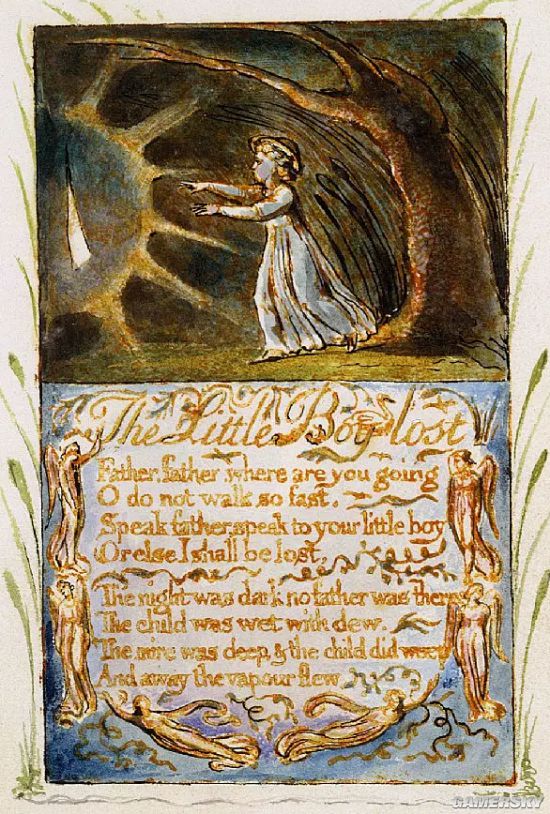 The Little Boy lost
Father, father, where are you going
O do not walk so fast.
Speak father, speak to your little boy
Or else I shall be lost,
The night was dark no father was there
The child was wet with dew.
The mire was deep, & the child did weep
And away the vapour flew
GAMERSKY